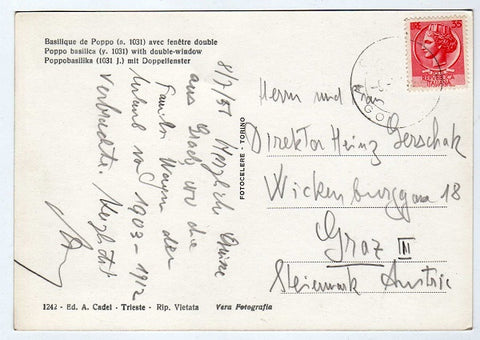 Basilique de Poppo (s. 1031) avec fenêtre double
Poppo basilica (y. 1031) with double-window
Poppobasilika (1031 J.) mit Doppelfenster
8/7/51 Herzliche Grüsse
aus wo die
Familie der
Urlaub von 1903-1912
verbrachte.
FOTOCELERE - TORINO
LIRE 35
REPVBBLICA
ITALIANA
Herrn und Frau
Direktor Heinz Gerschak
Wickenburggasse 18
Graz III
Steiermark Austria
1242 - Ed. A. Cadel - Trieste - Rip. Vietata Vera Fotografia